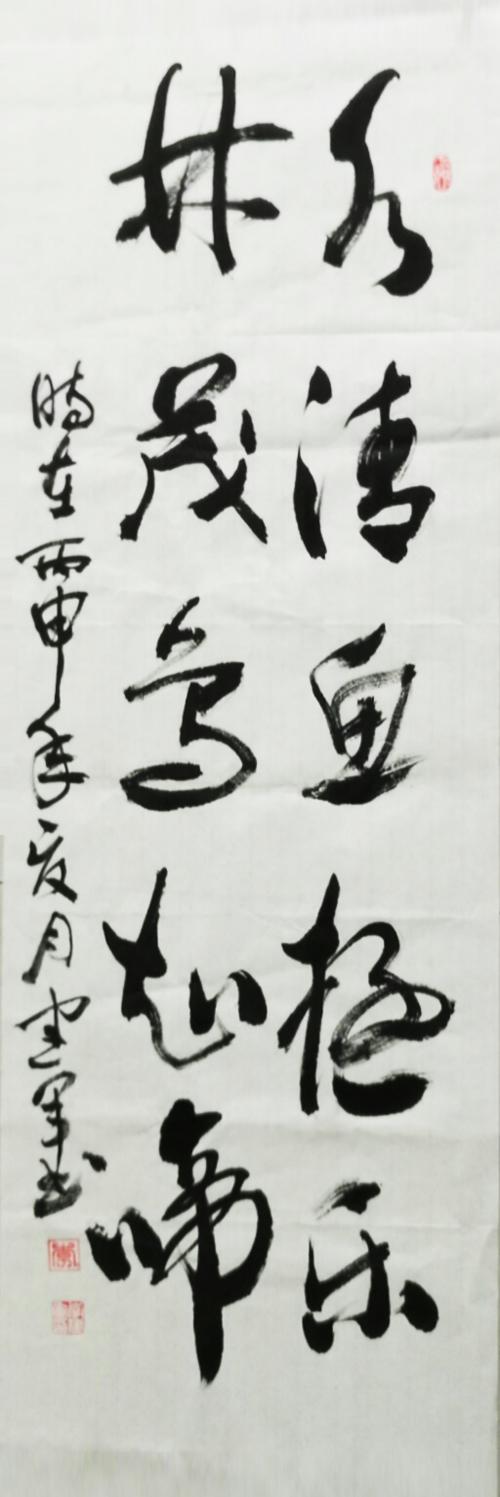 水清鱼极乐
林茂鸟知啼
时在丙申年夏月军书